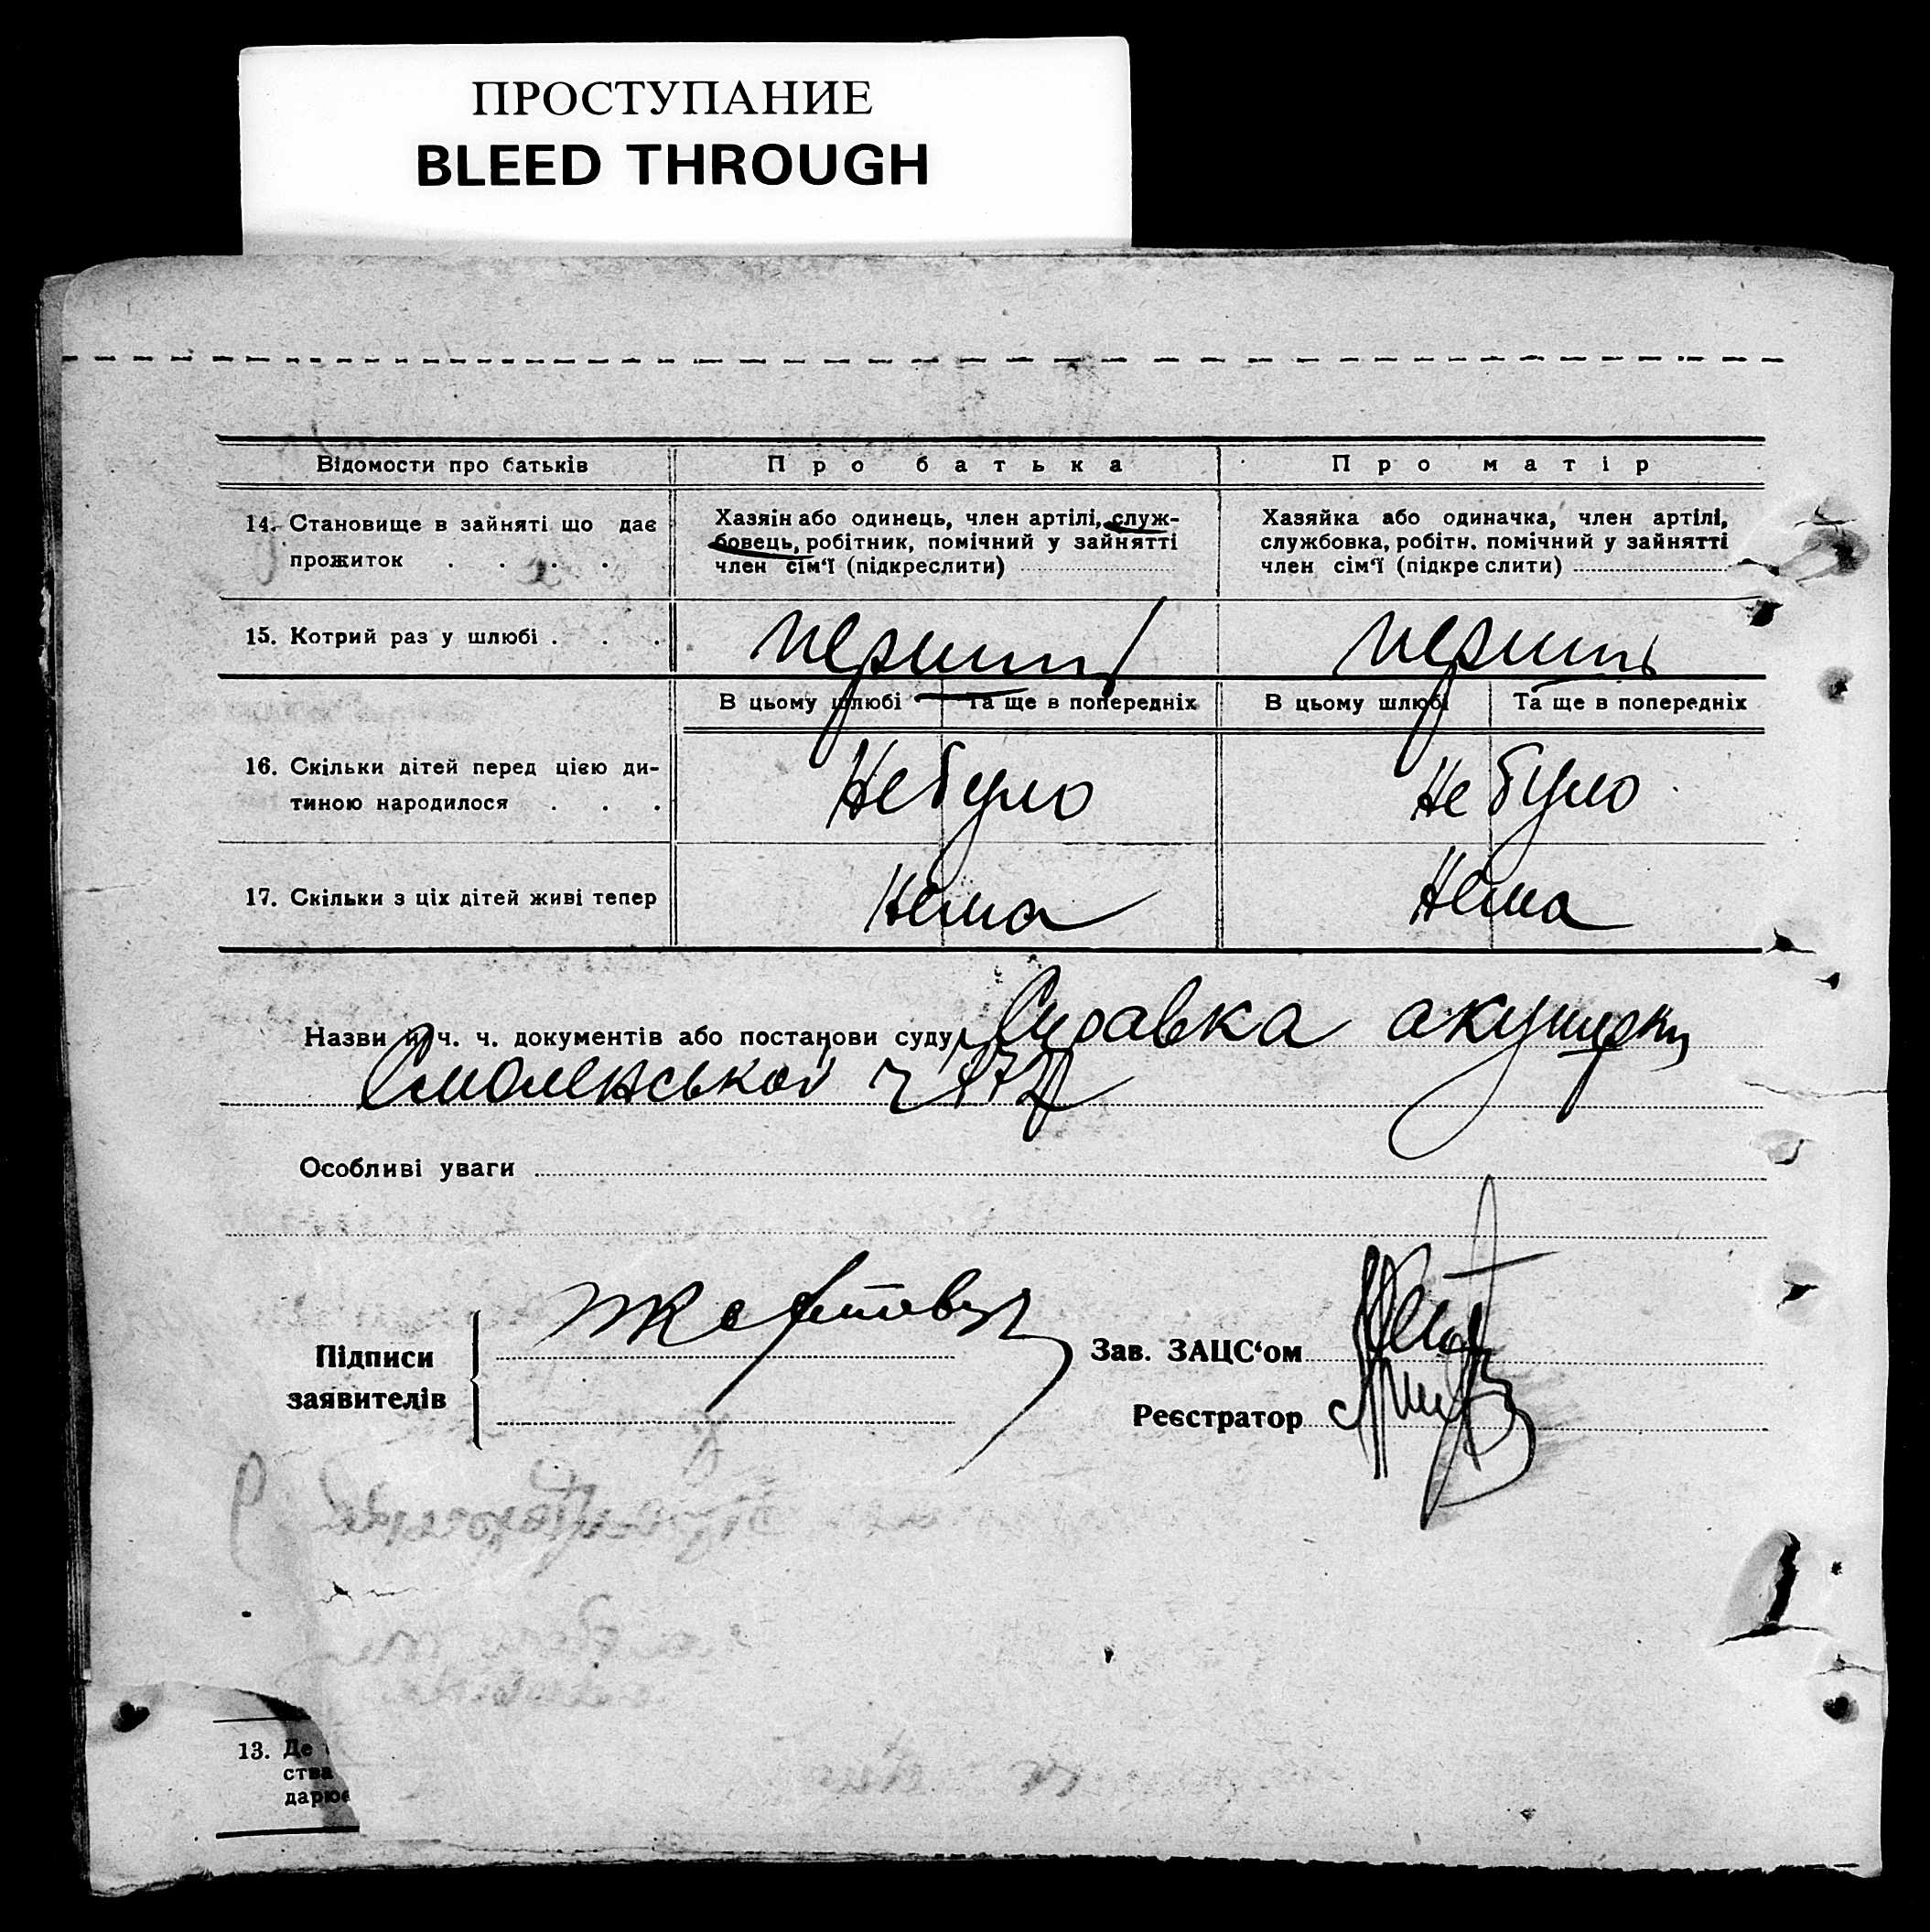 ПРОСТУПАНИЕ
BLEED THROUGH
Відомости про батьків
Про батька
Про матір
14. Становище в зайняті що дає
прожиток . . . .
Хазяїн або одинець, член артілі, служ-
бовець, робітник, помічний у зайнятті
член сім‘ї (підкреслити)
Хазяйка або одиначка, член артілі,
службовка, робітн. помічний у зайнятті
член сім‘ї (підкреслити)
15. Котрий раз у шлюбі . . .
перший
перший
В цьому шлюбі
Та ще в попередніх
В цьому шлюбі
Та ще в попередніх
16. Скільки дітей перед цією ди-
тиною народилося . . .
Не було
Не було
17. Скільки з ціх дітей живі тепер
Нема
Нема
Назви й ч. ч. документів або постанови суду Справка акушерки
Смоленської ч
Особливі уваги
Підписи
заявителів
Зав. ЗАЦС‘ом
Реєстратор
13. Де
ства
дарює